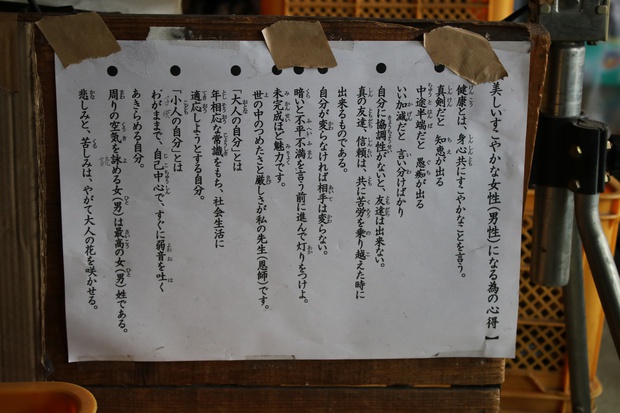 美しいすこやかな女性(男性)になる為の心得】
健康とは、身心共にすこやかなことを言う。
真剣だと 知恵が出る
中途半端だと 愚痴が出る
いい加減だと 言い分けばかり
●自分に協調性がないと、友達は出来ない。
真の友達、信頼は、共に苦労を乗り越えた時に
出来るものである。
●自分が変らなければ相手は変らない。
●暗いと不平不満を言う前に進んで灯りをつけよ。
●未完成ほど魅力です。
世の中のつめたさと厳しさが私の先生(恩師)です。
●「大人の自分」とは
年相応な常識をもち、社会生活に
適応しようとする自分。
●「小人の自分」とは
わがままで、自己中心で、すぐに弱音を吐く
あきらめる自分。
●周りの空気を詠める女(男)は最高の女(男)姓である。
悲しみと、苦しみは、やがて大人の花を咲かせる。